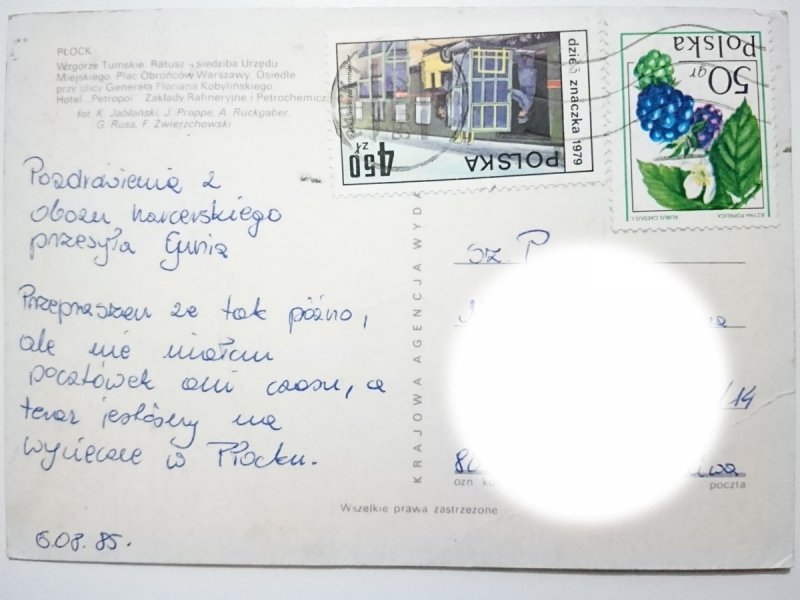 PŁOCK
Wzgórze Tumskie. Ratusz - siedziba Urzędu
Miejskiego. Plac Obrońców Warszawy. Osiedle
przy ulicy Generała Floriana Kobylińskiego.
Hotel „Petropol". Zakłady Rafineryjne i Petrochemicz
fot. K. Jabłoński, J. Proppe, A. Rückgaber,
G. Russ, F. Zwierzchowski
Pozdrowienia z
obozu harcerskiego
przesyła Gunia
Przepraszam że tak późno,
ale nie miałam
pocztówek ani czasu, a
teraz jesteśmy na
wycieczce w Płocku.
6.08.85.
dzień znaczka 1979
POLSKA
4,50
zł
POLSKA
50
gr
JEŻYNA POPIELICA
RUBUS CAESIUS L.
KRAJOWA AGENCJA WYDA
Sz. P.
na
/14
80
wa
ozn ko
poczta
Wszelkie prawa zastrzeżone